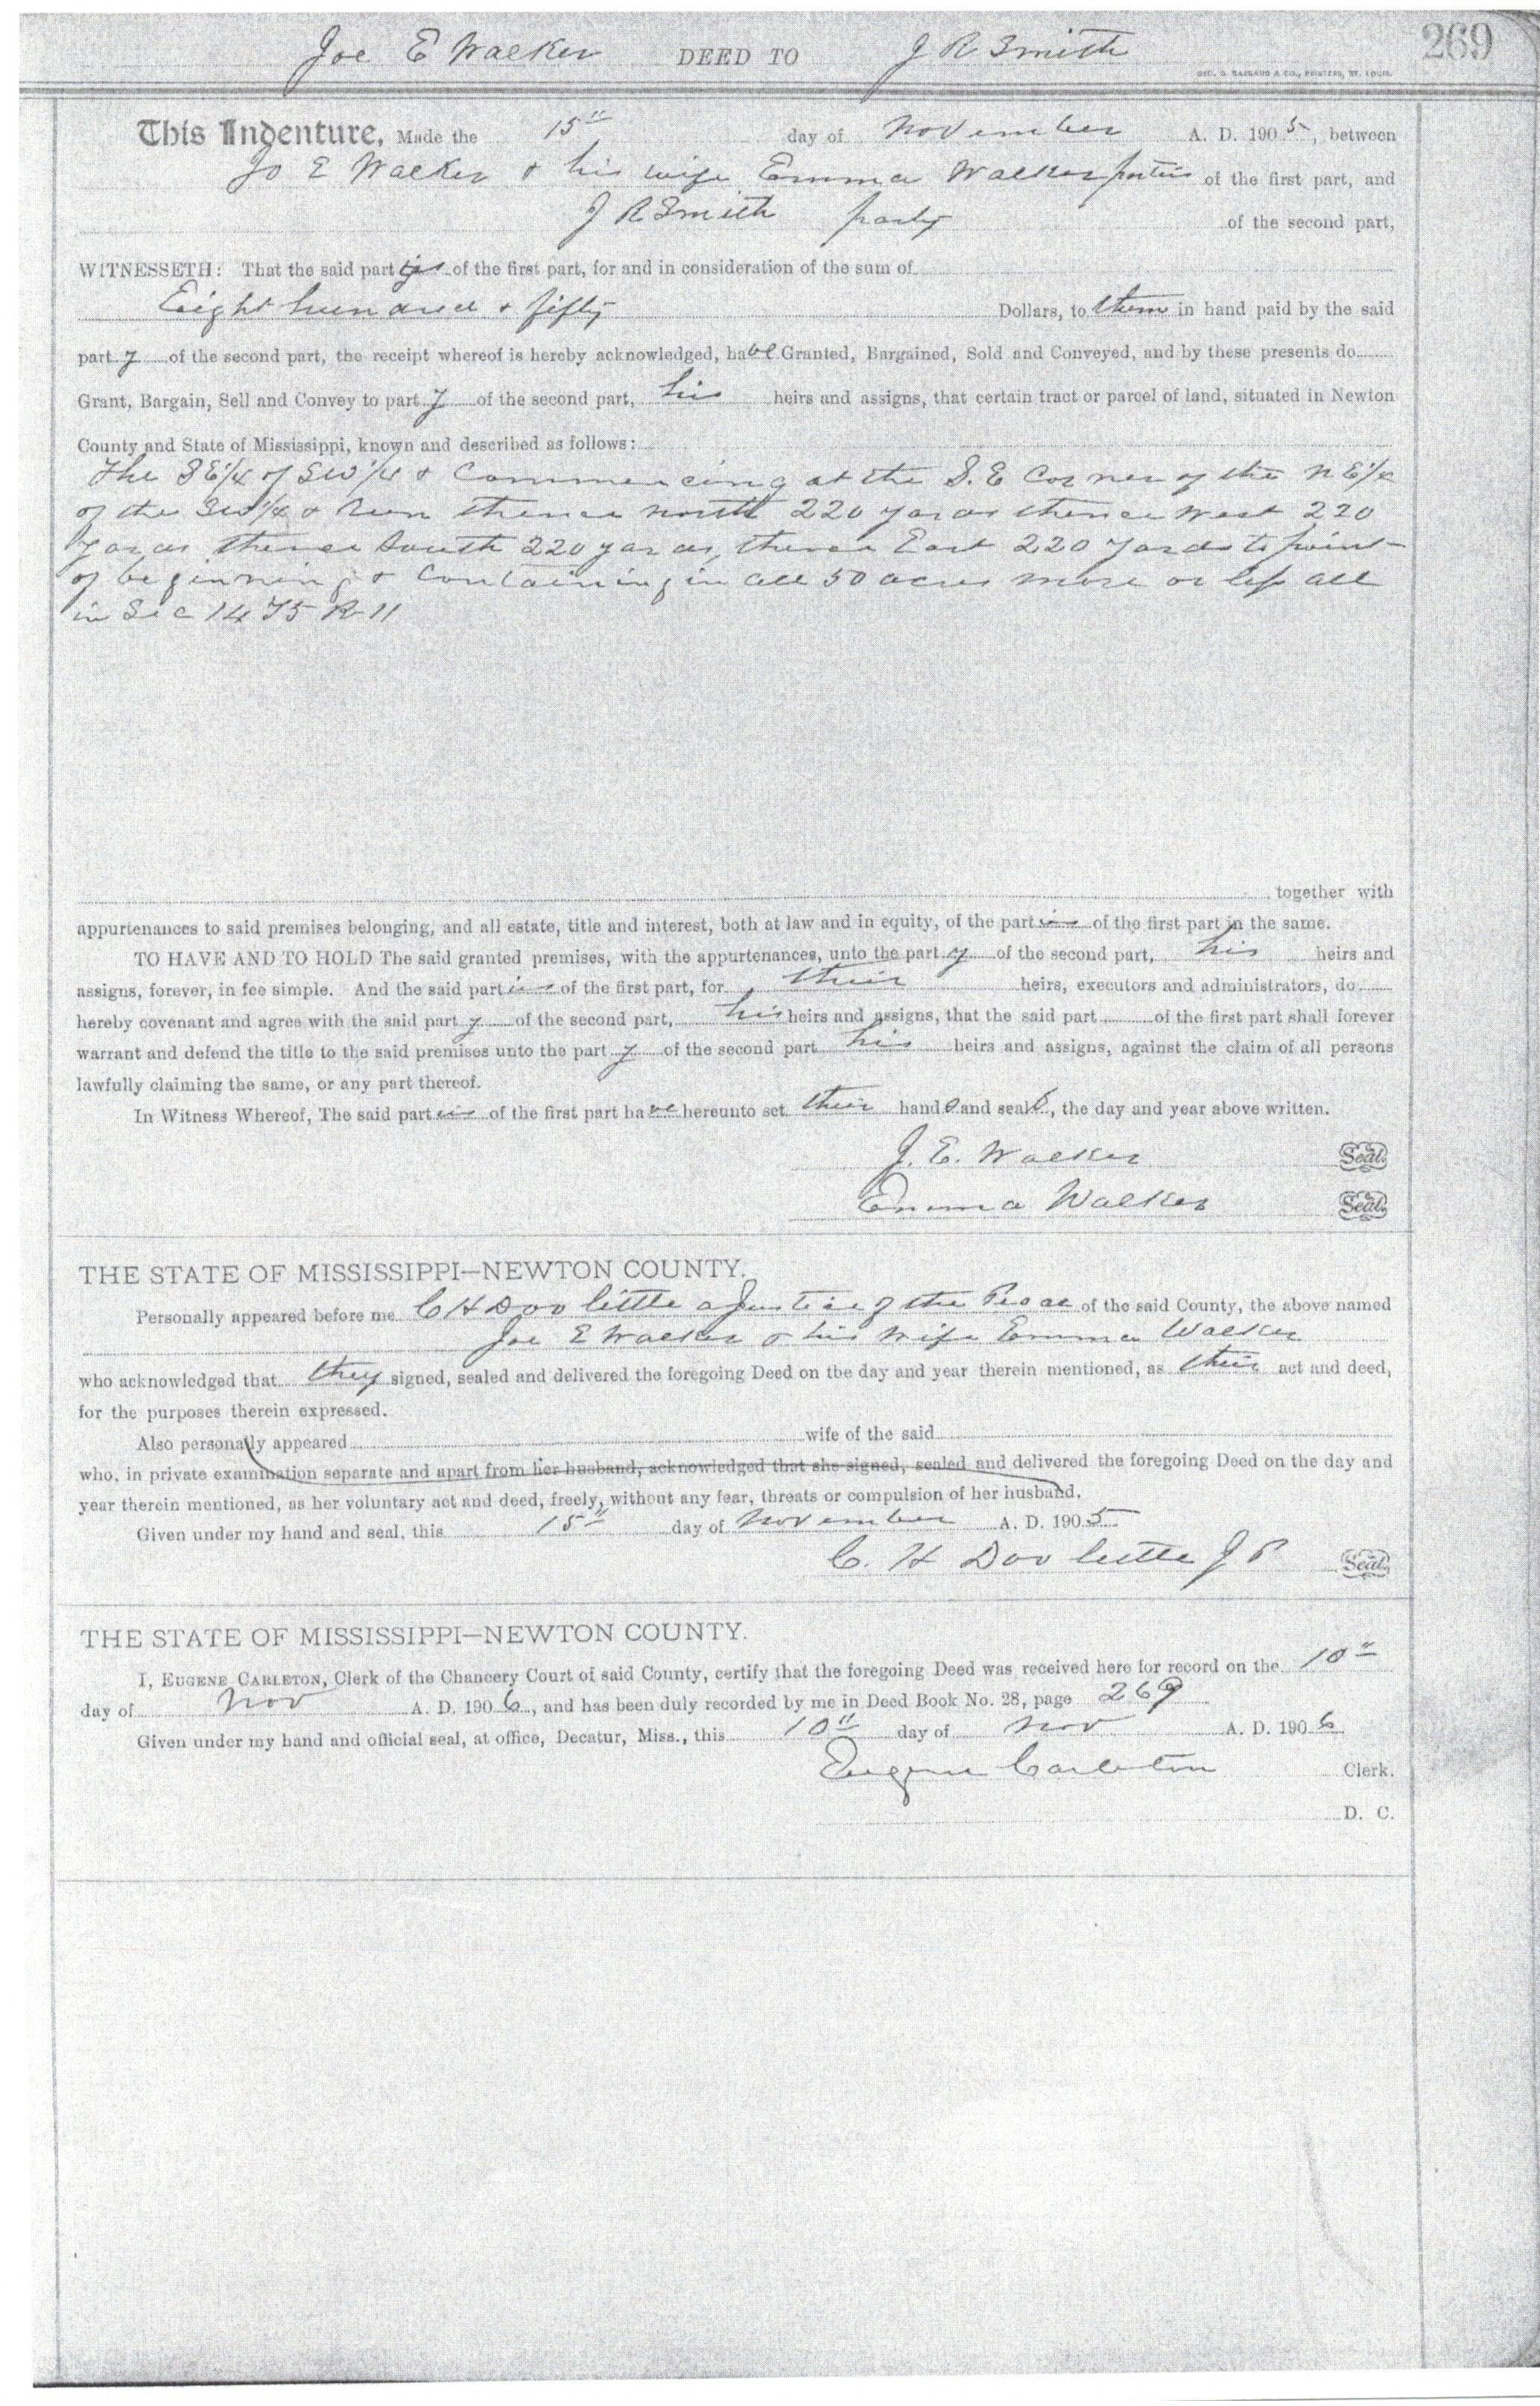 269
Joe E Walker DEED TO J R Smith
GEO. D. BARNARD & CO., PRINTERS, ST. LOUIS.
This Indenture, Made the 15" day of November A. D. 1905, between
Jo E Walker & his wife Emma Walker parties of the first part, and
J R Smith party of the second part,
WITNESSETH: That the said parties of the first part, for and in consideration of the sum of
Eight hundred & fifty Dollars, to them in hand paid by the said
party of the second part, the receipt whereof is hereby acknowledged, have Granted, Bargained, Sold and Conveyed, and by these presents do
Grant, Bargain, Sell and Convey to party of the second part, his heirs and assigns, that certain tract or parcel of land, situated in Newton
County and State of Mississippi, known and described as follows:
The SE1/4 of SW1/4 & Commencing at the S.E Corner of the NE1/4
of the SW1/4 & Run thence north 220 yards thence west 220
yards thence South 220 yards, thence East 220 yards to point
of beginning & Containing in all 50 acres more or less all
in Sec 14 T5 R 11
together with
appurtenances to said premises belonging, and all estate, title and interest, both at law and in equity, of the parties of the first part in the same.
TO HAVE AND TO HOLD The said granted premises, with the appurtenances, unto the party of the second part, his heirs and
assigns, forever, in fee simple. And the said parties of the first part, for their heirs, executors and administrators, do
hereby covenant and agree with the said party of the second part, his heirs and assigns, that the said part of the first part shall forever
warrant and defend the title to the said premises unto the party of the second part his heirs and assigns, against the claim of all persons
lawfully claiming the same, or any part thereof.
In Witness Whereof, The said parties of the first part have hereunto set their hands and seals, the day and year above written.
J. E. Walker Seal.
Emma Walker Seal.
THE STATE OF MISSISSIPPI—NEWTON COUNTY.
Personally appeared before me C H Doolittle a Justice of the Peace of the said County, the above named
Joe E Walker & his wife Emma Walker
who acknowledged that they signed, sealed and delivered the foregoing Deed on the day and year therein mentioned, as their act and deed,
for the purposes therein expressed.
Also personally appeared wife of the said
who, in private examination separate and apart from her husband, acknowledged that she signed, sealed and delivered the foregoing Deed on the day and
year therein mentioned, as her voluntary act and deed, freely, without any fear, threats or compulsion of her husband.
Given under my hand and seal, this 15" day of November A. D. 1905
C. H Doolittle J P Seal.
THE STATE OF MISSISSIPPI—NEWTON COUNTY.
I, EUGENE CARLETON, Clerk of the Chancery Court of said County, certify that the foregoing Deed was received here for record on the 10"
day of Nov A. D. 1906, and has been duly recorded by me in Deed Book No. 28, page 269
Given under my hand and official seal, at office, Decatur, Miss., this 10" day of Nov A. D. 1906
Eugene Carleton Clerk.
D. C.